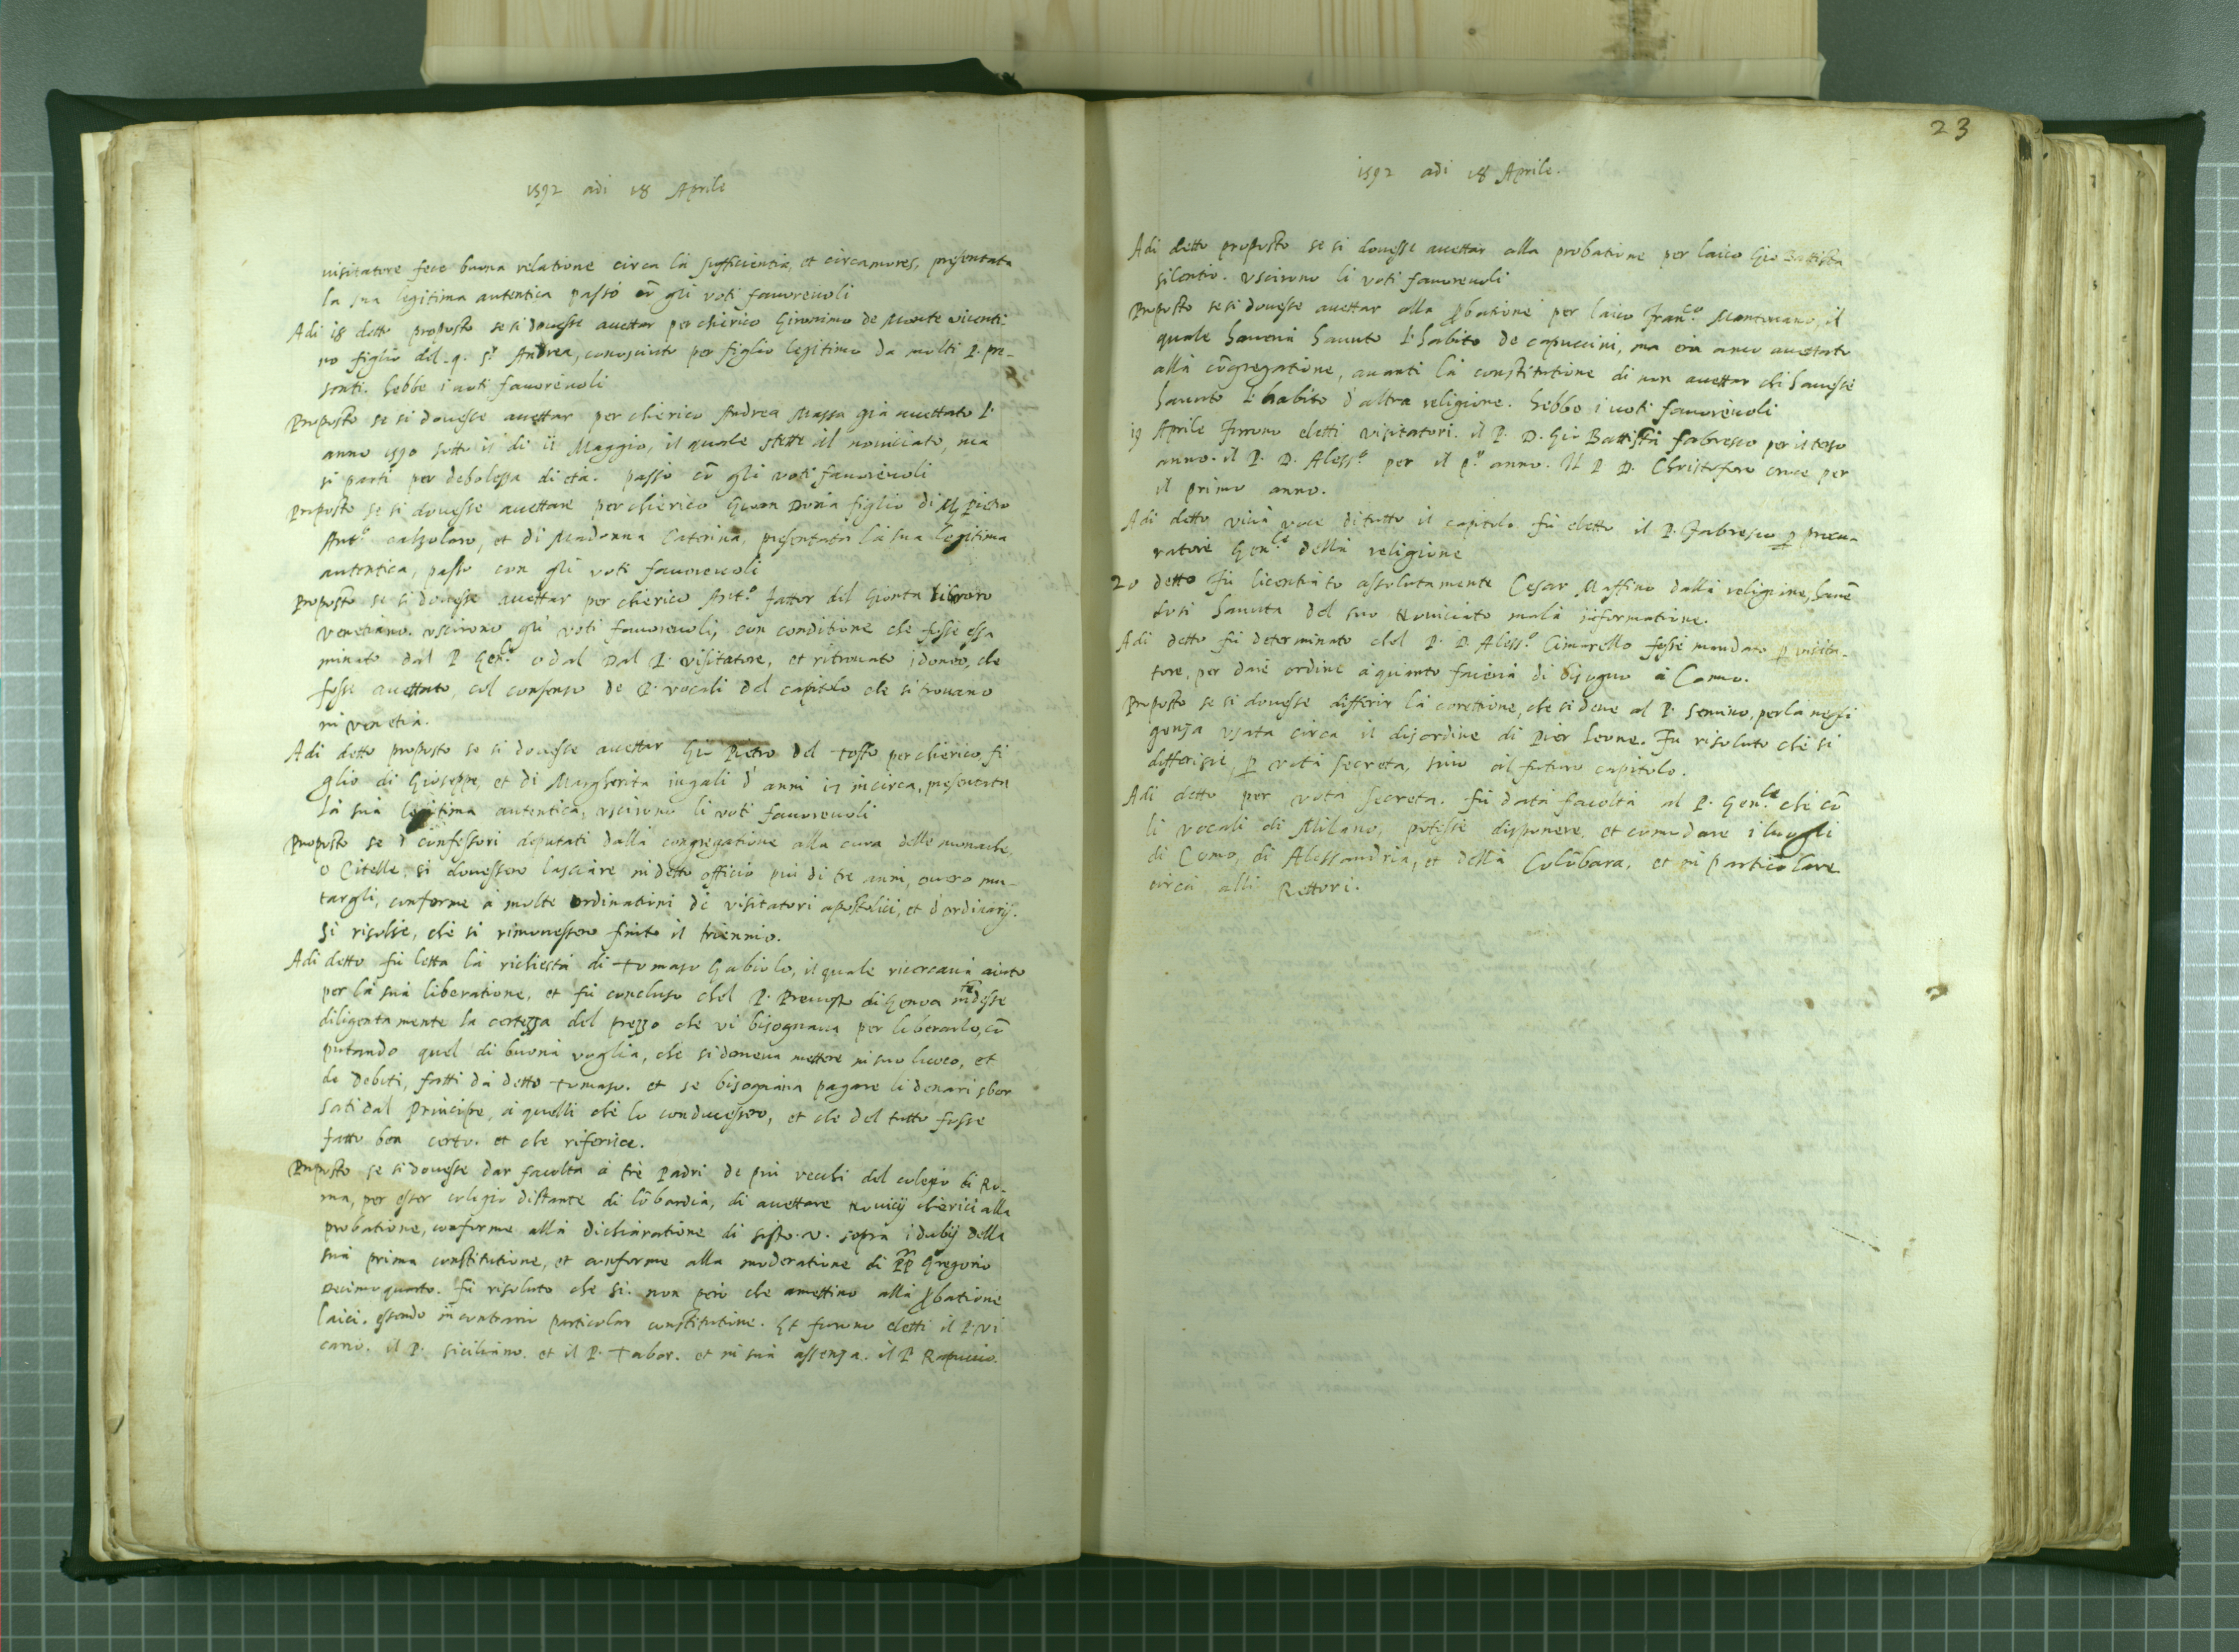 1592 adi 18 Aprile
visitatore fece buona relatione circa la sufficientia, et circa mores, presentata
la sua legitima autentica passò cō gli voti favorevoli
Adi 18 detto proposto se si dovesse accettar per chierico Gironimo de Monte vicenti
no figlio del q. s.r Andrea, conosciuto per figlio legitimo da molti P. pre-
senti. hebbe i voti favorevoli
Proposto se si dovesse accettar per chierico Andrea Massa già accettato l'
anno 1590 sotto il di 11 Maggio, il quale stette al noviciato, ma
si parti per debolezza di età. passò cō gli voti favorevoli
Proposto se si dovesse accettare per chierico Givan Doria figlio di M. Pietro
Ant.o calzolaro, et di Madonna Caterina, presentata la sua legitima
autentica, passo con gli voti favorevoli
Proposto se si dovesse accettar per chierico Ant.o fattor del Gionta libraro
venetiano. uscirono gli voti favorevoli, con conditione che fosse essa
minato dal P. Gen.le o dal Dal P. visitatore, et ritrovato idoneo, che
fosse accettato, col consenso de P. vocali del capitolo che si trovano
in venetia.
Adi detto proposto se si dovesse accettar Gio Pietro del Tosso per chierico, fi
glio di Gioseppe, et di Margherita iugali d' anni 17 incirca, presentata
la sua legitima autentica, uscirono li voti favorevoli
Proposto se i confessori deputati dalla congregatione alla cura delle monache,
o Citelle, si dovessero lasciare in detto officio più di tre anni, overo mu-
targli, conforme à molte ordinationi de visitatori apostolici, et d'ordinarij.
Si risolse, che si rimovessero finito il triennio.
Adi detto fù letta la richiesta di Tomaso Gabiolo, il quale ricercava aiuto
per la sua liberatione, et fù concluso chel P. Preuosto di Genoa intēdesse
diligentamente la certezza del prezzo che vi bisognava per liberarlo, cō
putando quel di buona voglia, che si doveva mettere in suo luoco, et
li debiti, fatti dà detto Tomaso. et se bisognava pagare li denari sbor
sati dal Principe, à quelli che lo conducessero, et che del tutto fosse
fatto ben certo. et che riferisce.
Proposto se si dovesse dar facoltà à trè Padri de più vecchi del colegio di Ro-
ma, per esser colegio distante di lōbardia, di accettare Novicij chierici alla
probatione, conforme alla dichiaratione di sisto. v. sopra i dubij della
sua prima constitutione, et conforme alla moderatione di PP Gregorio
Decimo quarto. fù risoluto che si. non però che amettino alla ꝓbatione
laici. essendo in contrario particolar constitutione. Et furono eletti il P. vi
cario. il P. siciliano. et il P. Tabor. et in sua assenza. il P.
23
1592 adi 18 Aprile.
Adi detto proposto se si dovesse accettar alla probatione per laico Gio Battista
silentio. uscirono li voti favorevoli
Proposto se si dovesse accettar alla ꝓbatione per laico Fran.co Mantovano, il
quale haveva havuto l'habito de capuccini, ma era anco accettato
alla cōgregatione, avanti la constitutione di non accettar chi havesse
havuto l'habito d'altra religione. hebbe i voti favorevoli
19 Aprile Furono eletti visitatori. il P. D. Gio Battista fabresco per il terzo
anno. il P. D. Aless.o per il 2.o anno. Il P. D. Christoforo per
il primo anno.
Adi detto viva voce di tutto il capitolo fù eletto il P. Fabresco ꝑ procu-
ratore Gen.le della religione
20 detto Fù licentiato assolutamente Cesar Maffino dalla religione, havē
dosi havuta del suo Noviciato mala informatione.
Adi detto fù determinato chel P. D. Aless.o Cimarello fosse mandato ꝑ visita-
tore, per dare ordine à quanto faceva di bisogno à Como.
Proposto se si dovesse differir la corettione, che si deve al P. Semino, per la negli
genza usata circa il disordine di Pier Leone. Fu risoluto che si
differisce, ꝑ voti secreta, sino al futuro capitolo.
Adi detto per vota secreta. fù data facoltà al P. Gen.le che cō
li vocali di Milano, potesse disponere, et comodare i luoghi
di Como, di Alessandria, et della Colōbara, et in particolare
circa alli Rettori.